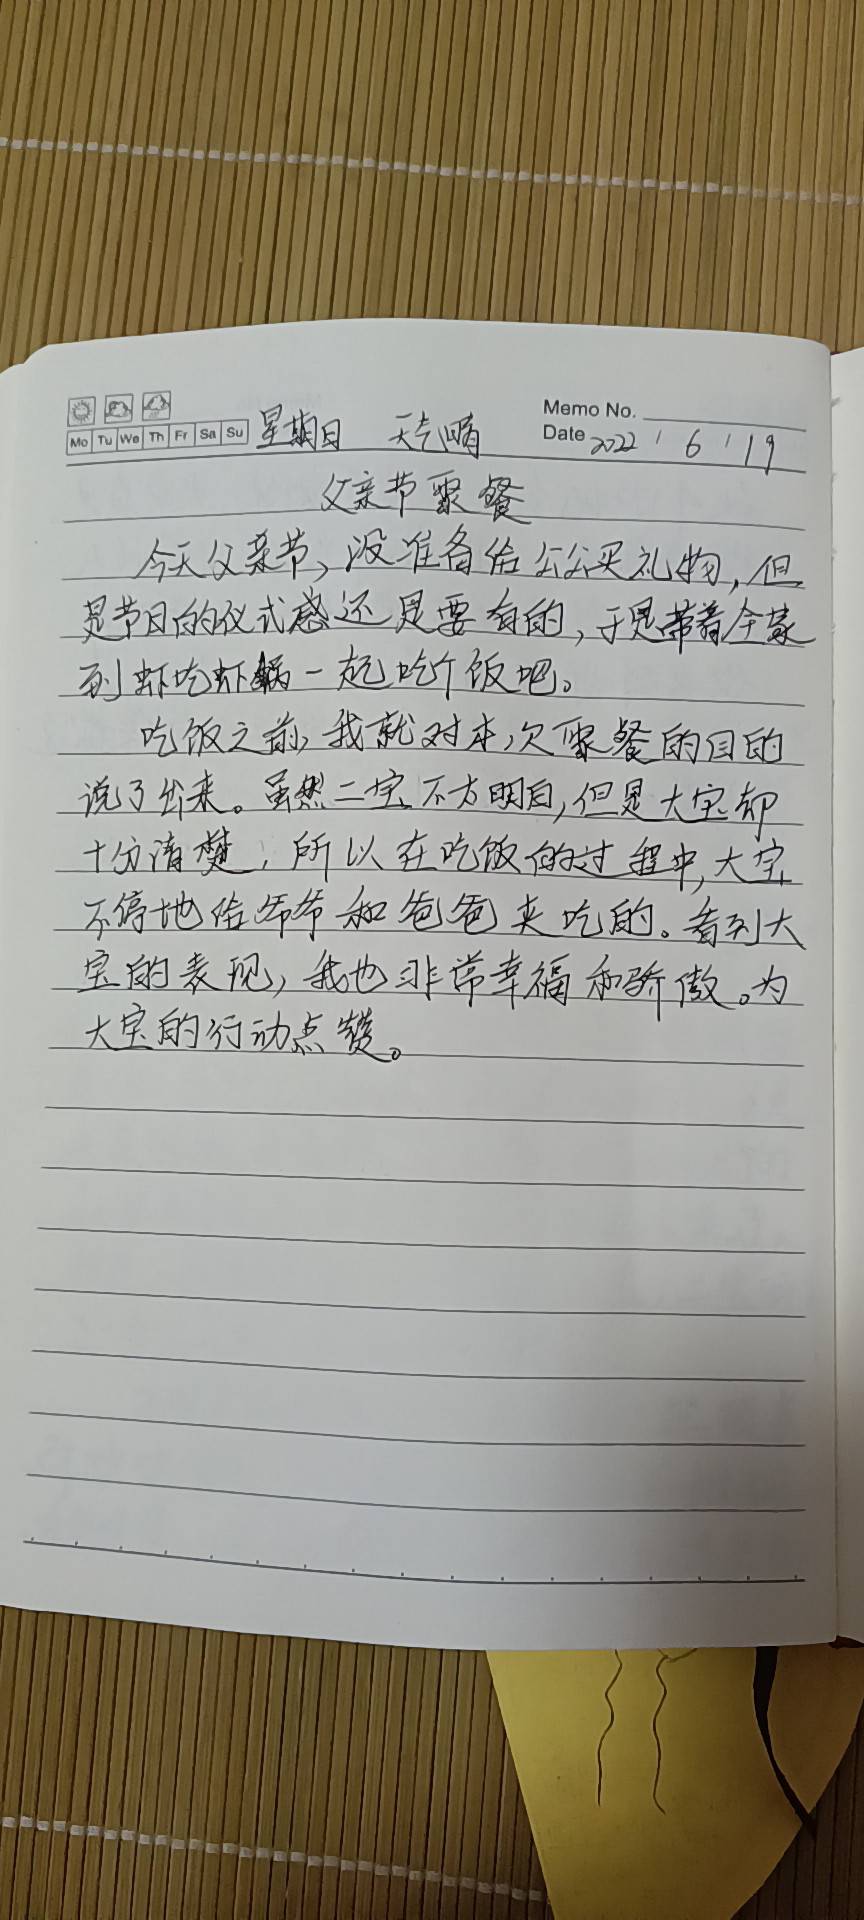 Memo No.
Mo Tu We Th Fr Sa Su 星期日 天气晴 Date 2022 / 6 / 19
父亲节聚餐
今天父亲节,没准备给公公买礼物,但
是节日的仪式感还是要有的,于是带着全家
到虾吃虾涮一起吃个饭吧。
吃饭之前,我就对本次聚餐的目的
说了出来。虽然二宝不太明白,但是大宝却
十分清楚,所以在吃饭的过程中,大宝
不停地给爷爷和爸爸夹吃的。看到大
宝的表现,我也非常幸福和骄傲。为
大宝的行动点赞。